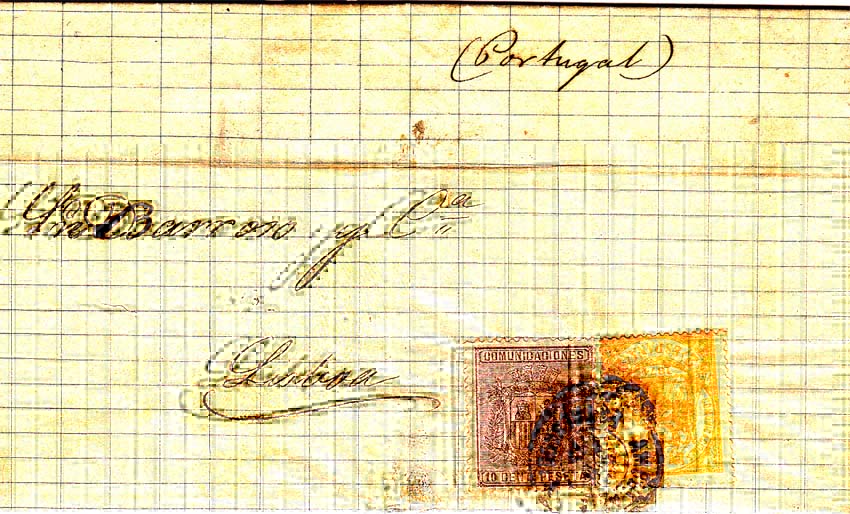 (Portugal)
Barroso y Cia
Lisboa
COMUNICACIONES
10 CENT PESETA